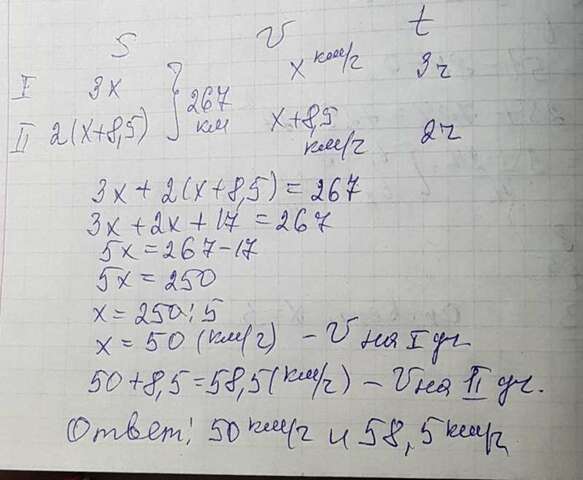 S V t
I 3x x км/ч 3ч
II 2(x+8,5) } 267 км x+8,5 км/ч 2ч
3x + 2(x+8,5) = 267
3x + 2x + 17 = 267
5x = 267 - 17
5x = 250
x = 250 : 5
x = 50 (км/ч) - V на I уч
50 + 8,5 = 58,5 (км/ч) - V на II уч.
Ответ: 50 км/ч и 58,5 км/ч